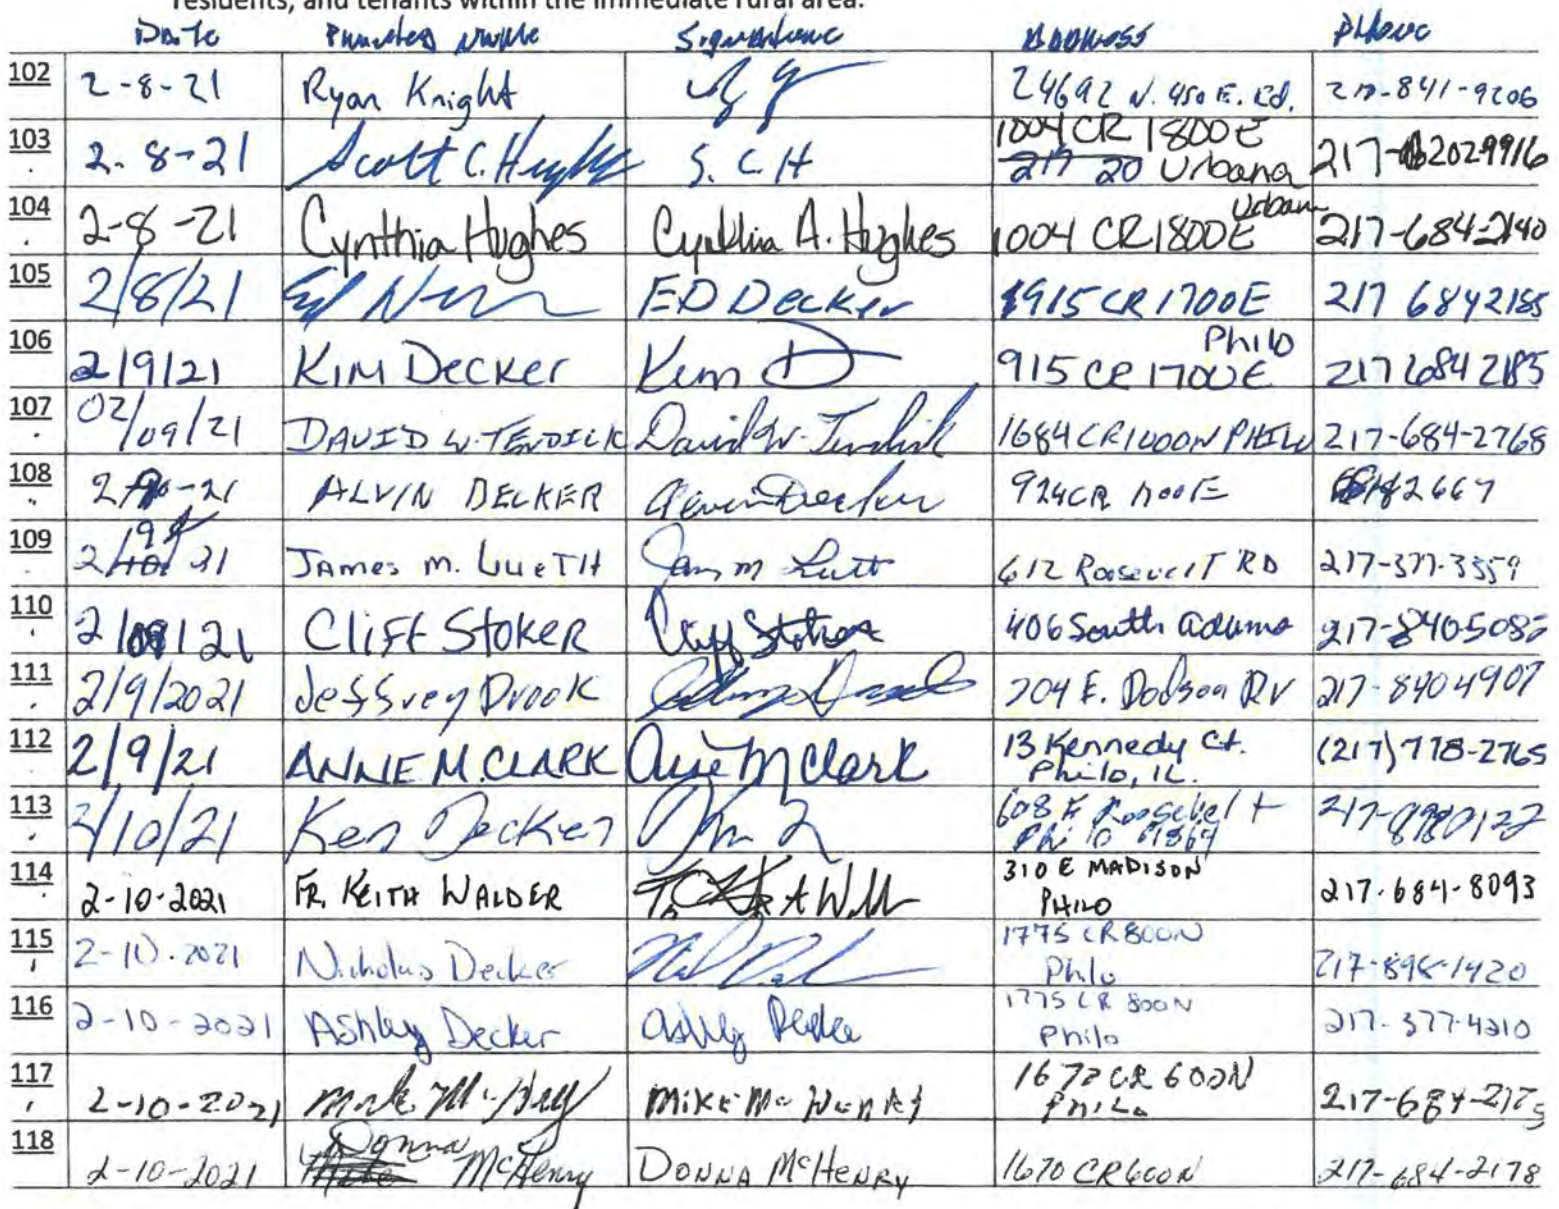 residents, and tenants within the immediate rural area.
Date Printed Name Signature Address Phone
102 2-8-21 Ryan Knight 24692 N. 450 E. Rd. 217-841-9206
103 2-8-21 Scott C. Hughes S. C. H 1004 CR 1800E Urbana 217-2029916
104 2-8-21 Cynthia Hughes Cynthia A. Hughes 1004 CR 1800E Urbana 217-684-2140
105 2/8/21 ED Decker 915 CR 1700E 217 6842185
106 2/9/21 Kim Decker Kim D 915 CR 1700E Philo 217 684 2185
107 02/09/21 DAVID W. TENDICK David W. Tendick 1684 CR 1000N PHILO 217-684-2768
108 ALVIN DECKER Alvin Decker 924 CR 1700E 2667
109 2/9/21 James M. LueTH 612 Roosevelt RD 217-377-3359
110 2/09/21 Cliff Stoker Cliff Stoker 406 South Adams 217-840508
111 2/9/2021 Jeffrey Drook 204 E. Dodson Dr 217-8404907
112 2/9/21 ANNIE M. CLARK Annie M Clark 13 Kennedy Ct. Philo, IL. (217)778-2765
113 2/10/21 Ken Decker 608 E Roosevelt Philo 217-
114 2-10-2021 FR. KEITH WALDER 310 E MADISON PHILO 217-684-8093
115 2-10-2021 Nicholas Decker 1775 CR 800N Philo 217-898-1420
116 2-10-2021 Ashley Decker Ashley Decker 1775 CR 800N Philo 217-377-4210
117 2-10-2021 Mike McHenry 1672 CR 600N Philo 217-684-2175
118 2-10-2021 Donna McHenry DONNA McHENRY 1670 CR 600N 217-684-2178